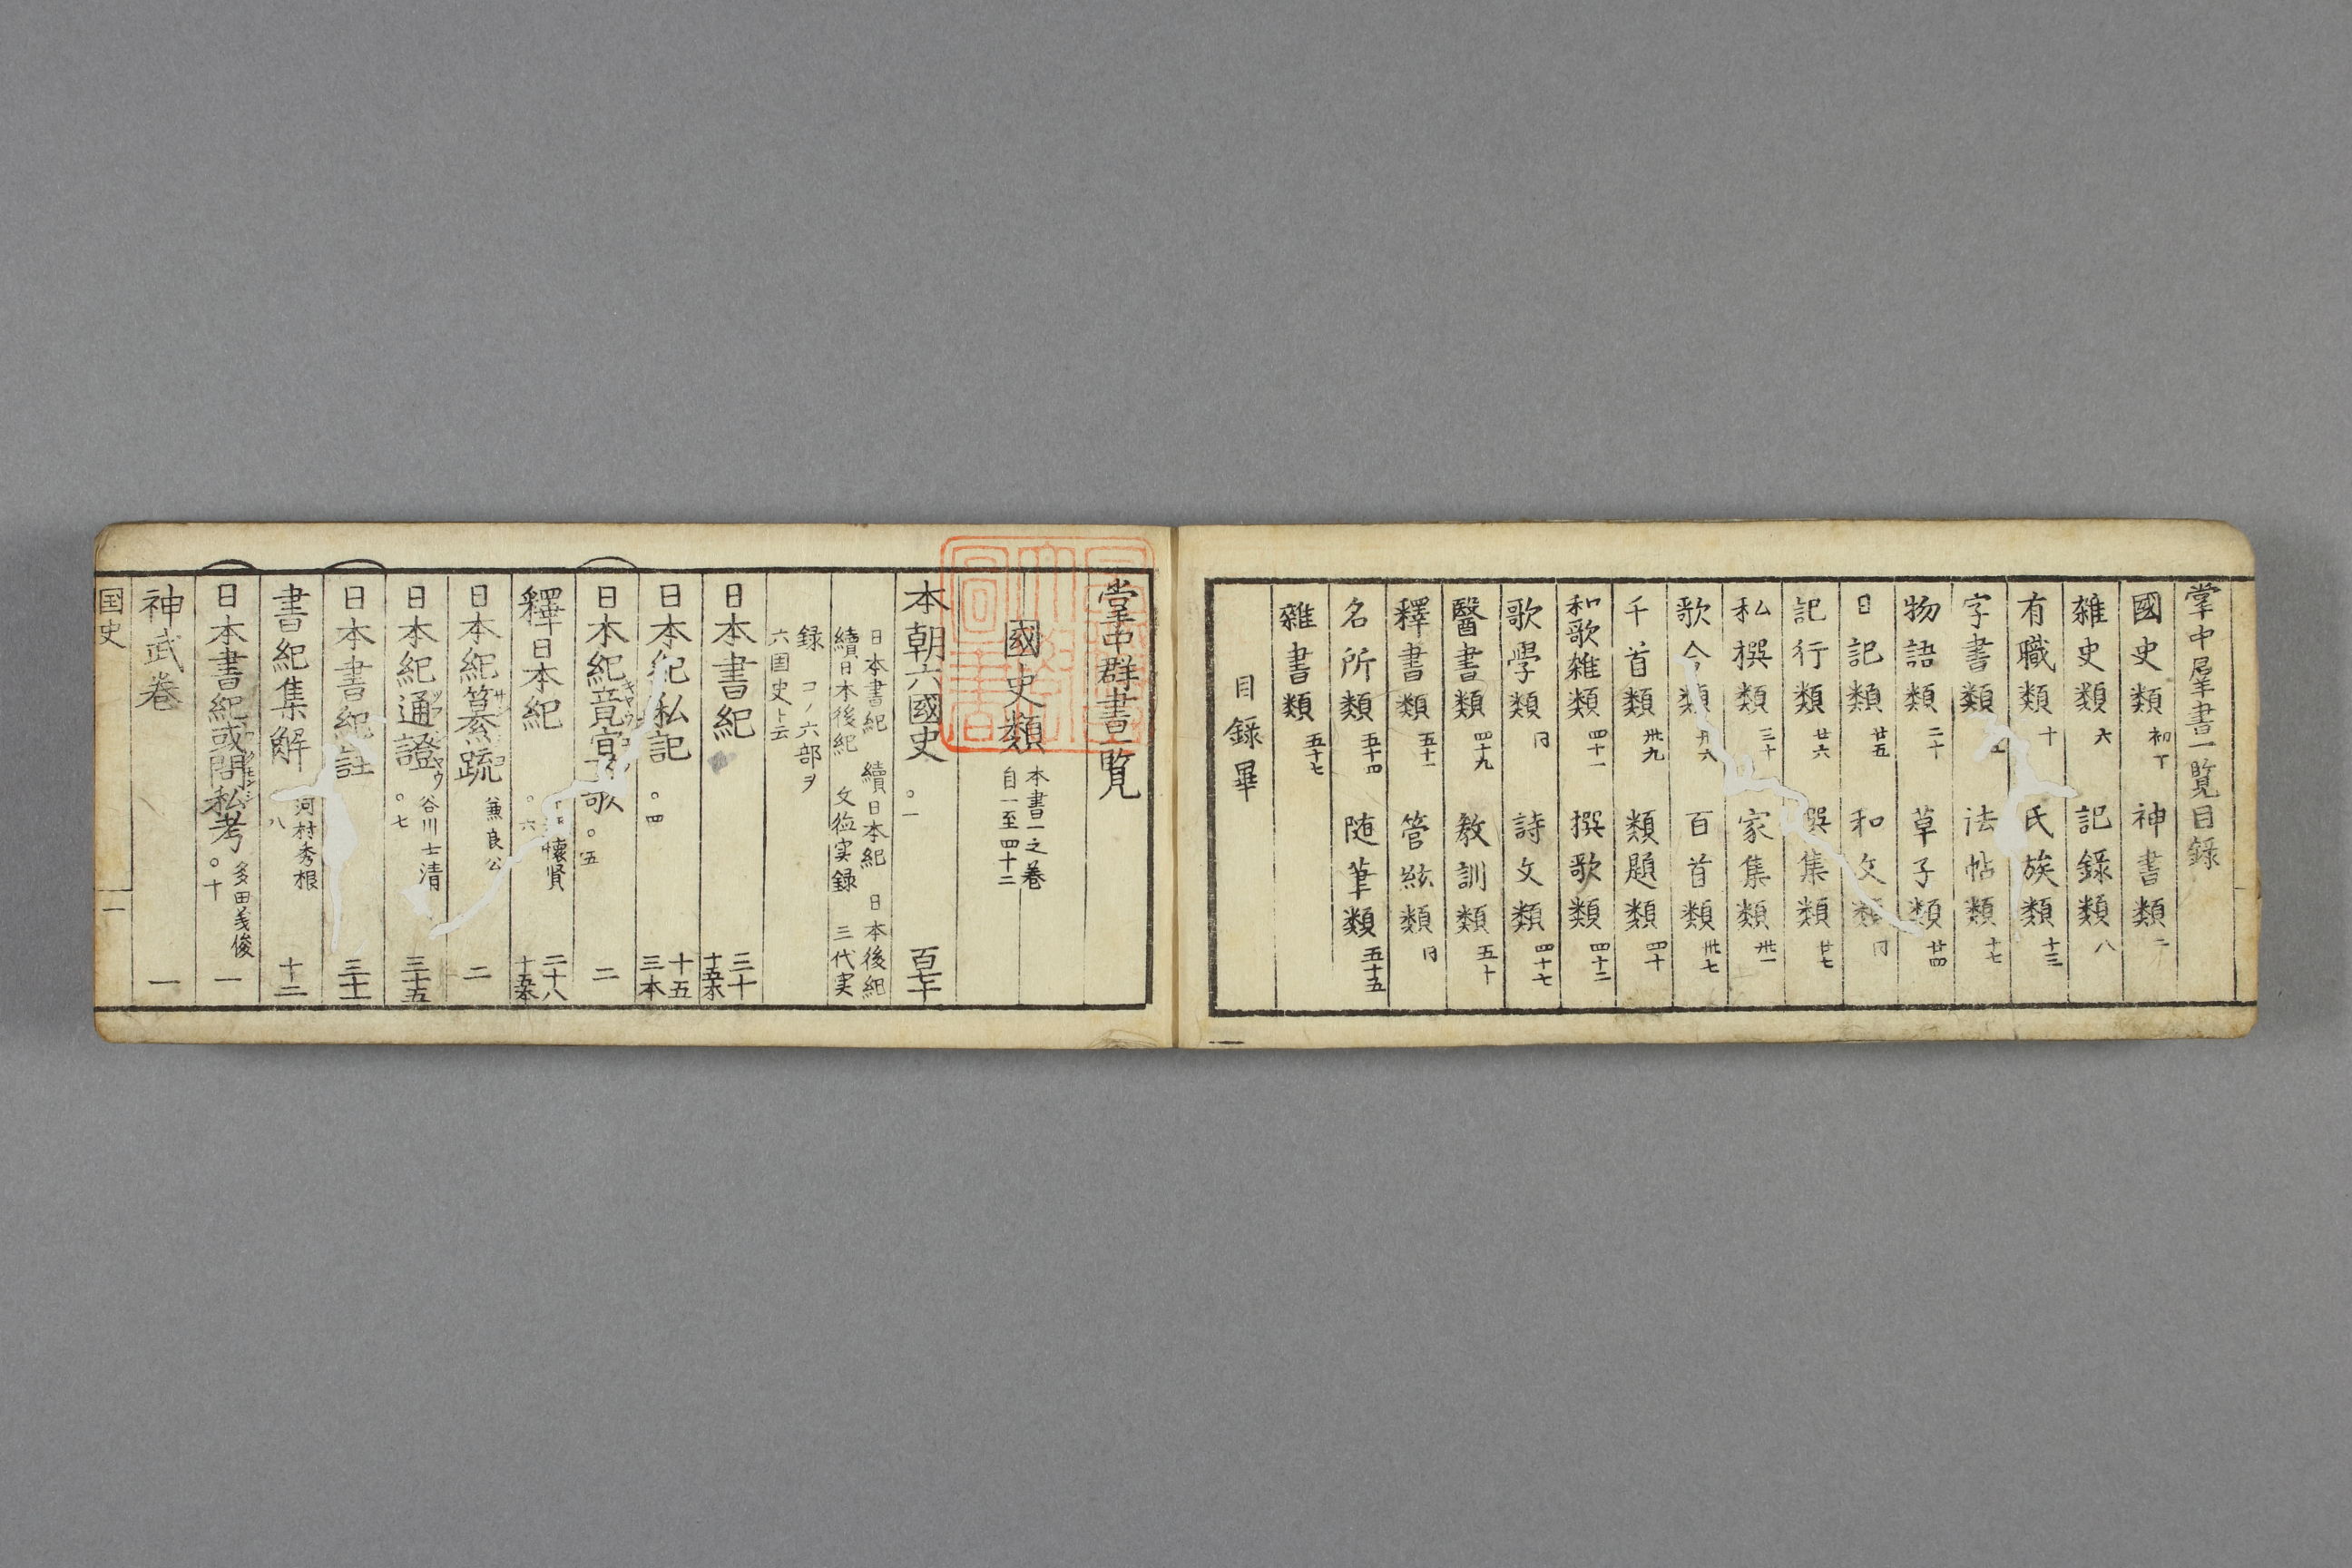 掌中群書一覧目録
國史類 初丁 神書類 二
雜史類 六 記錄類 八
有職類 十 氏族類 十三
字書類 法帖類 十七
物語類 二十 草子類 廿四
日記類 廿五 和文類 同
記行類 廿六 撰集類 廿七
私撰類 三十 家集類 卅一
歌合類 卅六 百首類 卅七
千首類 卅九 類題類 四十
和歌雜類 四十一 撰歌類 四十二
歌學類 同 詩文類 四十七
醫書類 四十九 教訓類 五十
釋書類 五十一 管絃類 同
名所類 五十四 随筆類 五十五
雜書類 五十七
目録畢
掌中群書一覧
國史類 本書一之巻
自一至四十二
本朝六國史 。一 百七十
日本書紀 續日本紀 日本後紀
續日本後紀 文徳実録 三代実
録 コノ六部ヲ
六国史ト云
日本書紀 三十
十五本
日本紀私記 。四 十五
三本
日本紀竟宴歌 。五 二
釋日本紀 懐賢 。六 二十八
十五本
日本紀纂疏 兼良公 二
日本紀通證 谷川士清 。七 三十五
日本書紀註 三十
書紀集解 河村秀根 八 十二
日本書紀或問私考 多田義俊 。十 一
神武巻 一
国史 一